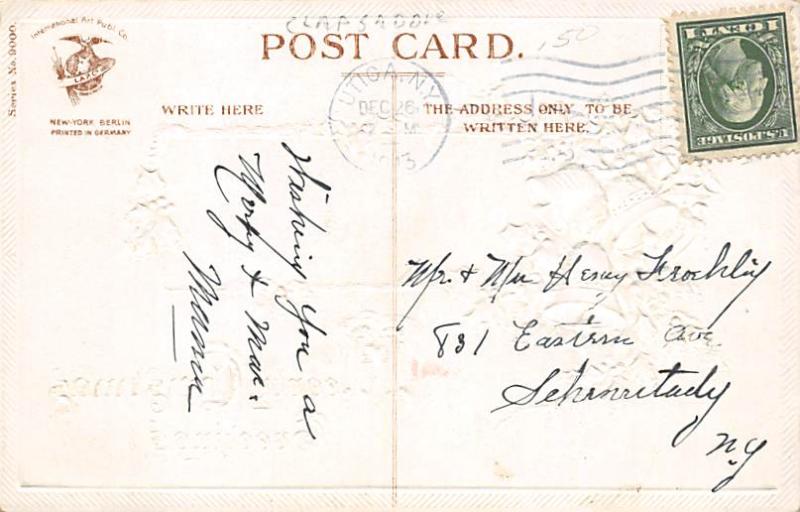 CLAPSADDLE
.50
International Art Publ. Co.
Series No. 9000.
NEW-YORK BERLIN
PRINTED IN GERMANY
POST CARD.
WRITE HERE
THE ADDRESS ONLY TO BE
WRITTEN HERE.
UTICA, N.Y.
DEC 26
1 CENT 1
U.S. POSTAGE
Wishing you a
Merry & Max.
Mama
Mr. & Mrs Henry Froehlig
831 Eastern Ave.
Schenectady
N.Y